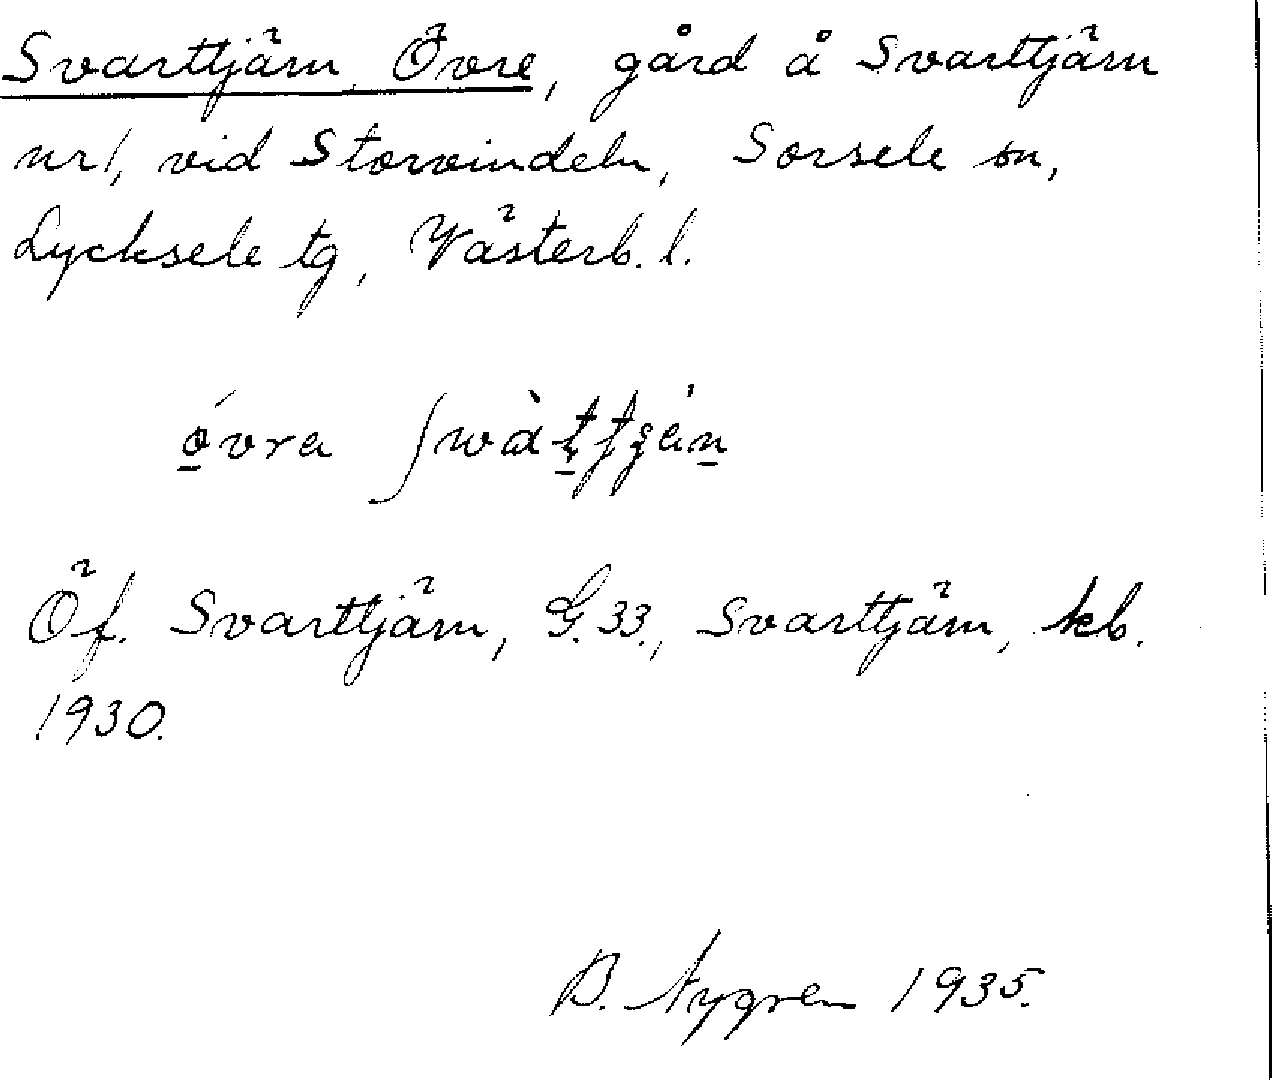 Svarttjärn, Övre, gård å Svarttjärn
nr 1, vid Storvindeln, Sorsele sn,
Lycksele tg, Västerb. l.
Öf. Svarttjärn, G. 33., Svarttjärn, kb.
1930.
B. Nygren 1935.